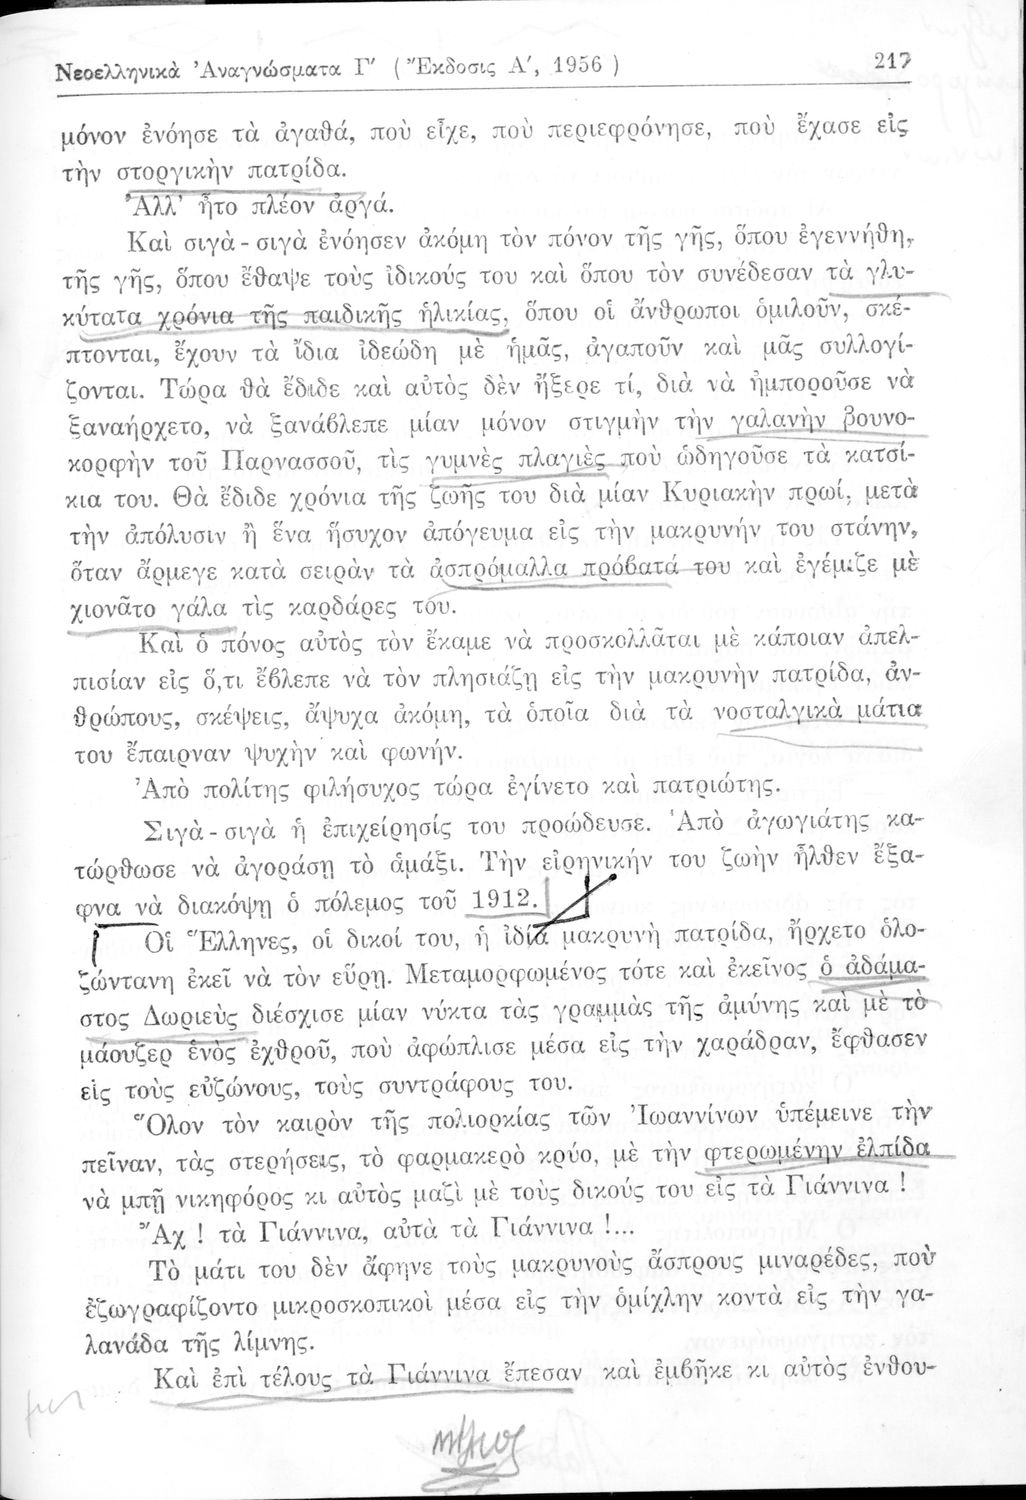 Νεοελληνικὰ Ἀναγνώσματα Γ′ ( Ἔκδοσις Α′, 1956 ) 217
μόνον ἐνόησε τὰ ἀγαθά, ποὺ εἶχε, ποὺ περιεφρόνησε, ποὺ ἔχασε εἰς
τὴν στοργικὴν πατρίδα.
Ἀλλ' ἦτο πλέον ἀργά.
Καὶ σιγὰ - σιγὰ ἐνόησεν ἀκόμη τὸν πόνον τῆς γῆς, ὅπου ἐγεννήθη,
τῆς γῆς, ὅπου ἔθαψε τοὺς ἰδικούς του καὶ ὅπου τὸν συνέδεσαν τὰ γλυ-
κύτατα χρόνια τῆς παιδικῆς ἡλικίας, ὅπου οἱ ἄνθρωποι ὁμιλοῦν, σκέ-
πτονται, ἔχουν τὰ ἴδια ἰδεώδη μὲ ἡμᾶς, ἀγαποῦν καὶ μᾶς συλλογί-
ζονται. Τώρα θὰ ἔδιδε καὶ αὐτὸς δὲν ἤξερε τί, διὰ νὰ ἠμποροῦσε νὰ
ξαναήρχετο, νὰ ξανάβλεπε μίαν μόνον στιγμὴν τὴν γαλανὴν βουνο-
κορφὴν τοῦ Παρνασσοῦ, τὶς γυμνὲς πλαγιὲς ποὺ ὡδηγοῦσε τὰ κατσί-
κια του. Θὰ ἔδιδε χρόνια τῆς ζωῆς του διὰ μίαν Κυριακὴν πρωί, μετὰ
τὴν ἀπόλυσιν ἢ ἕνα ἥσυχον ἀπόγευμα εἰς τὴν μακρυνήν του στάνην,
ὅταν ἄρμεγε κατὰ σειρὰν τὰ ἀσπρόμαλλα πρόβατά του καὶ ἐγέμιζε μὲ
χιονᾶτο γάλα τὶς καρδάρες του.
Καὶ ὁ πόνος αὐτὸς τὸν ἔκαμε νὰ προσκολλᾶται μὲ κάποιαν ἀπελ-
πισίαν εἰς ὅ,τι ἔβλεπε νὰ τὸν πλησιάζῃ εἰς τὴν μακρυνὴν πατρίδα, ἀν-
θρώπους, σκέψεις, ἄψυχα ἀκόμη, τὰ ὁποῖα διὰ τὰ νοσταλγικὰ μάτια
του ἔπαιρναν ψυχὴν καὶ φωνήν.
Ἀπὸ πολίτης φιλήσυχος τώρα ἐγίνετο καὶ πατριώτης.
Σιγὰ - σιγὰ ἡ ἐπιχείρησίς του προώδευσε. Ἀπὸ ἀγωγιάτης κα-
τώρθωσε νὰ ἀγοράσῃ τὸ ἁμάξι. Τὴν εἰρηνικήν του ζωὴν ἦλθεν ἔξα-
φνα νὰ διακόψῃ ὁ πόλεμος τοῦ 1912.
Οἱ Ἕλληνες, οἱ δικοί του, ἡ ἰδία μακρυνὴ πατρίδα, ἤρχετο ὁλο-
ζώντανη ἐκεῖ νὰ τὸν εὕρῃ. Μεταμορφωμένος τότε καὶ ἐκεῖνος ὁ ἀδάμα-
στος Δωριεὺς διέσχισε μίαν νύκτα τὰς γραμμὰς τῆς ἀμύνης καὶ μὲ τὸ
μάουζερ ἑνὸς ἐχθροῦ, ποὺ ἀφώπλισε μέσα εἰς τὴν χαράδραν, ἔφθασεν
εἰς τοὺς εὐζώνους, τοὺς συντρόφους του.
Ὅλον τὸν καιρὸν τῆς πολιορκίας τῶν Ἰωαννίνων ὑπέμεινε τὴν
πεῖναν, τὰς στερήσεις, τὸ φαρμακερὸ κρύο, μὲ τὴν φτερωμένην ἐλπίδα
νὰ μπῇ νικηφόρος κι αὐτὸς μαζὶ μὲ τοὺς δικούς του εἰς τὰ Γιάννινα !
Ἄχ ! τὰ Γιάννινα, αὐτὰ τὰ Γιάννινα !...
Τὸ μάτι του δὲν ἄφηνε τοὺς μακρυνοὺς ἄσπρους μιναρέδες, ποὺ
ἐζωγραφίζοντο μικροσκοπικοὶ μέσα εἰς τὴν ὁμίχλην κοντὰ εἰς τὴν γα-
λανάδα τῆς λίμνης.
Καὶ ἐπὶ τέλους τὰ Γιάννινα ἔπεσαν καὶ ἐμβῆκε κι αὐτὸς ἐνθου-